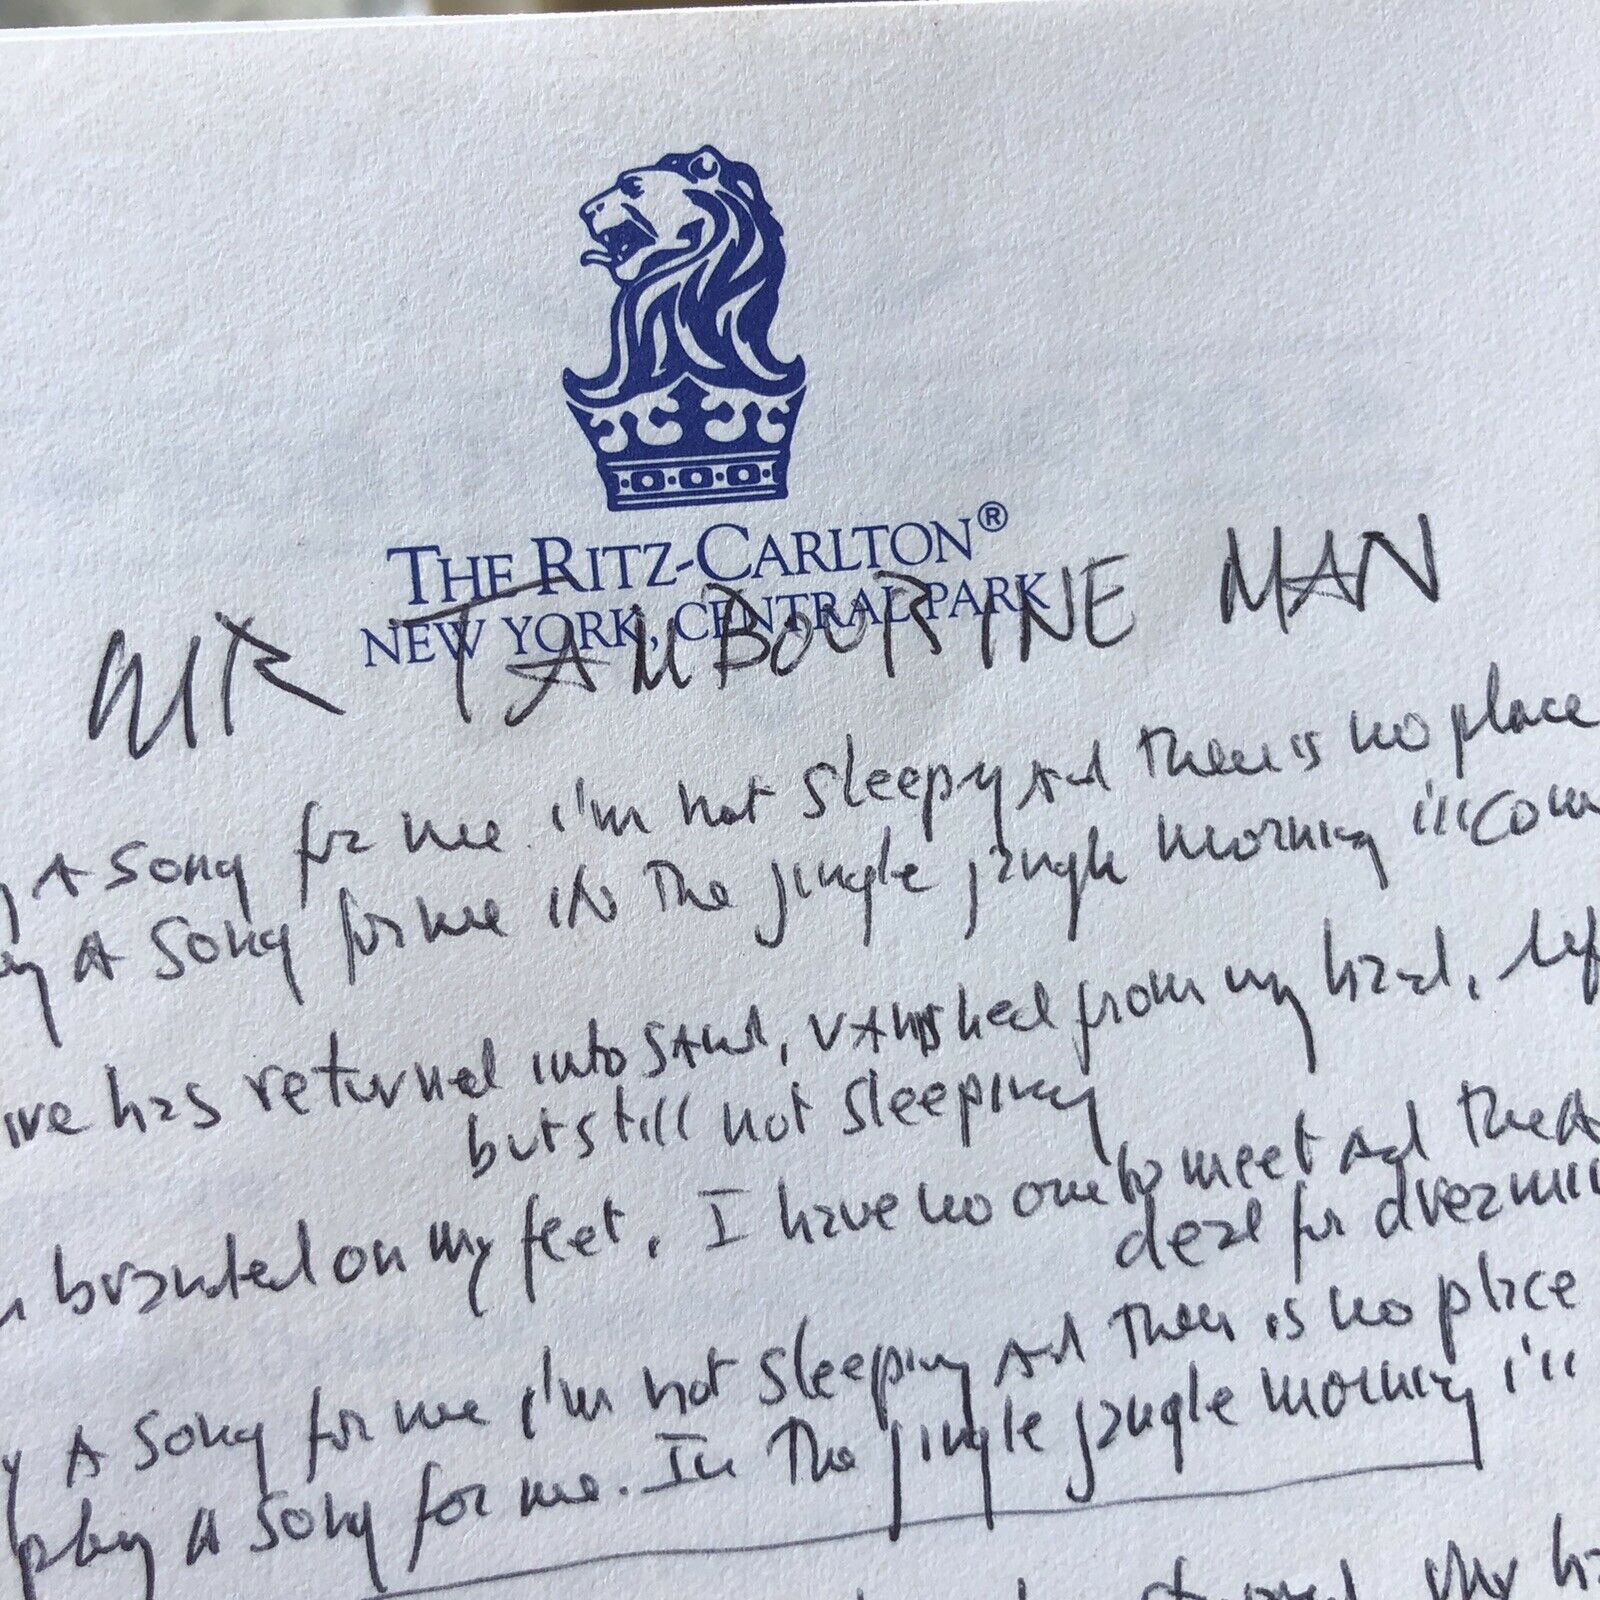 THE RITZ-CARLTON®
NEW YORK, CENTRAL PARK
MR TAMBOURINE MAN
A Song for me. i'm not sleepy And There is no place
A Song for me in The jingle jangle morning i'll com
has returned into sand, vanished from my hand, lef
but still not sleeping
branded on my feet, I have no one to meet And The A
dead for dreamin
A Song for me i'm not sleeping And There is no place
play A Song for me. In The jingle jangle morning i'll